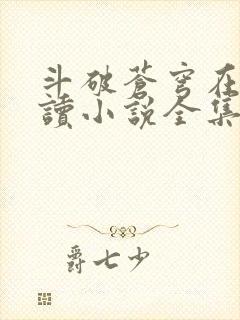 斗破蒼穹在
讀小說全集
爵七少